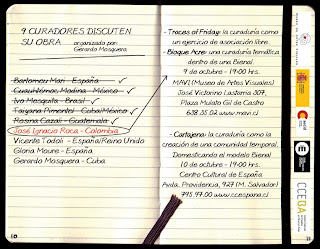 9 CURADORES DISCUTEN
SU OBRA organizado por:
Gerardo Mosquera
Bartomeu Mari - España
Cuauhtémoc Medina - México
Ivo Mesquita - Brasil
Taiyana Pimentel - Cuba/México
Rosina Cazali - Guatemala
José Ignacio Roca - Colombia
Vicente Todolí - España/Reino Unido
Gloria Moure - España
Gerardo Mosquera - Cuba
- Traces of Friday: la curaduría como
un ejercicio de asociación libre.
- Bloque Acre: una curaduría temática
dentro de una Bienal.
9 de octubre - 19:00 hrs.
MAVI (Museo de Artes Visuales)
José Victorino Lastarria 307,
Plaza Mulato Gil de Castro
638 35 02 www.mavi.cl
- Cartagena: la curaduría como la
creación de una comunidad temporal.
Domesticando el modelo Bienal
10 de octubre - 19:00 hrs.
Centro Cultural de España
Avda. Providencia, 927 (M. Salvador)
795 97 00 www.ccespana.cl
CCEBA